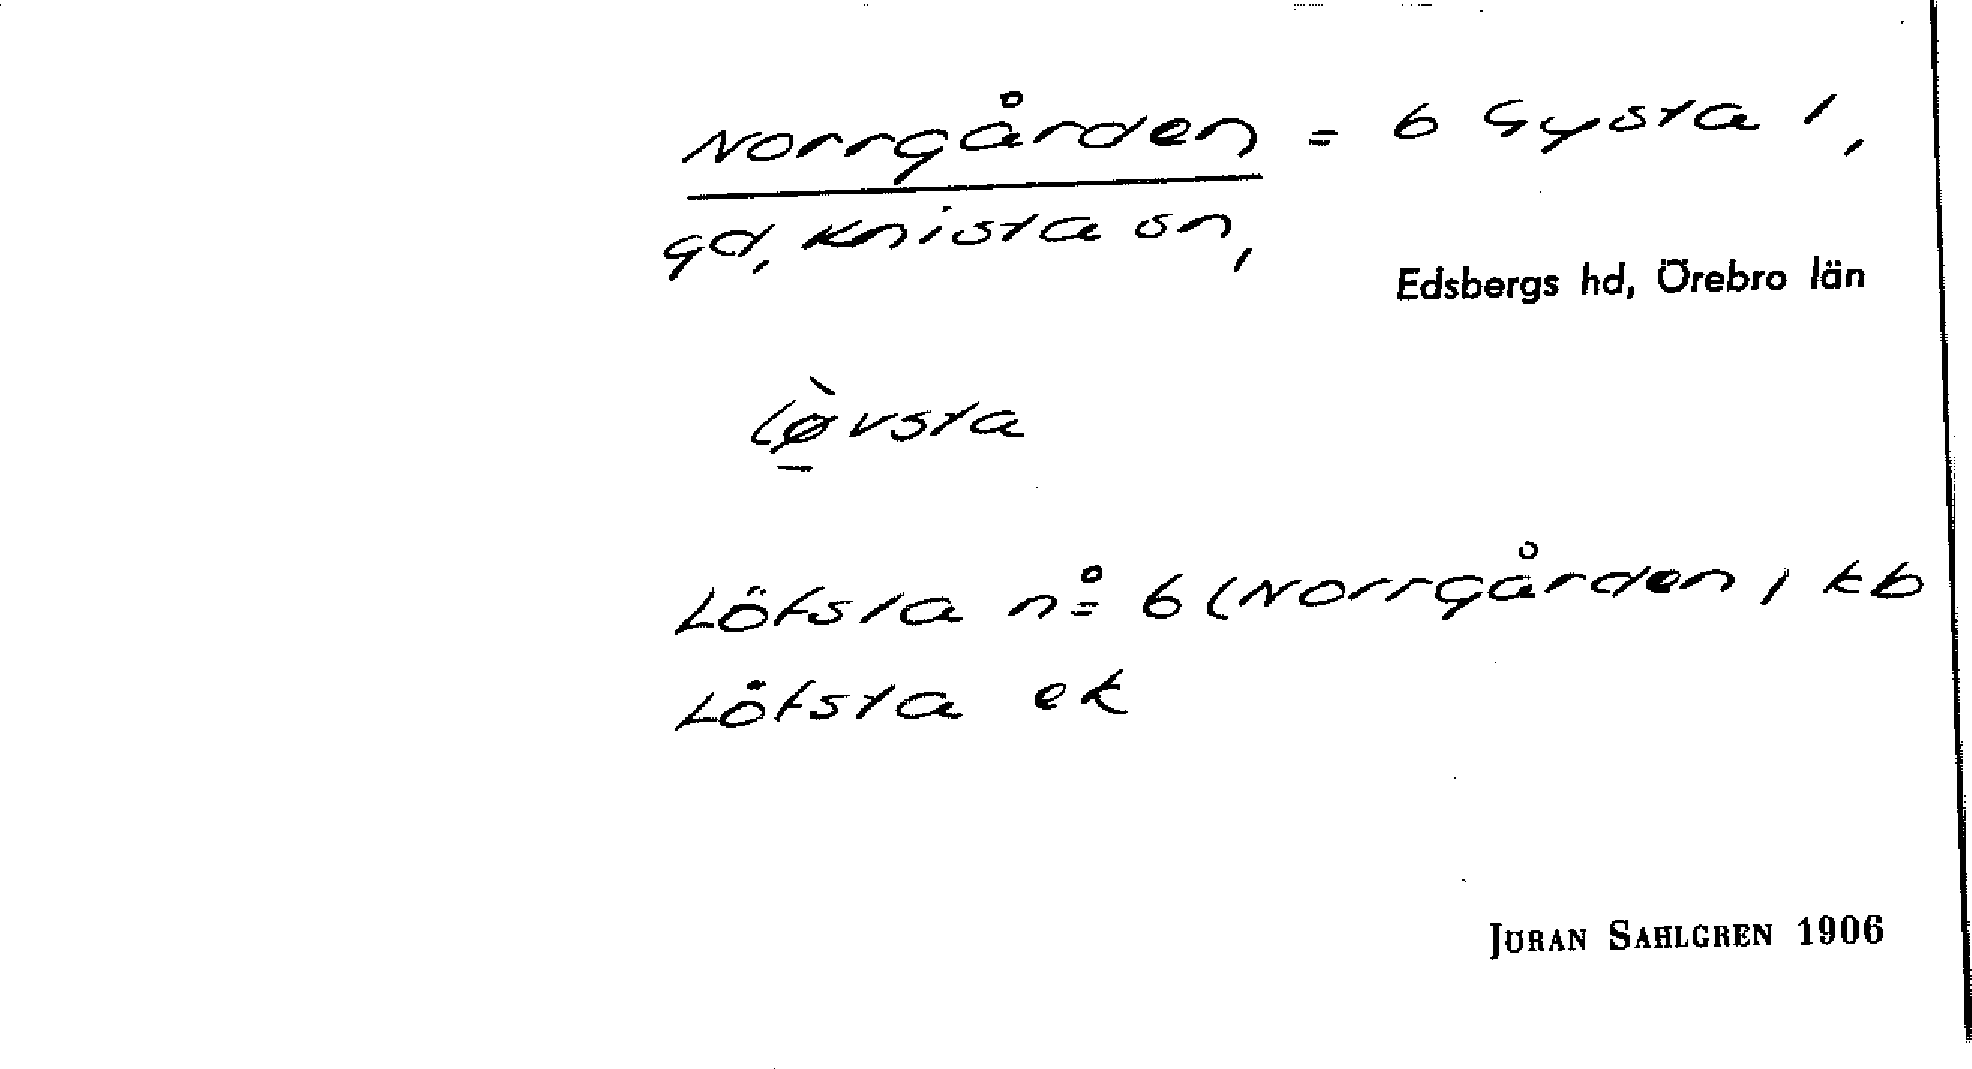 Norrgården = 6 Gysta 1,
gd, Knista sn,
Edsbergs hd, Örebro län
lø̀vsta
Löfsta nº 6 (Norrgården) kb
Löfsta ek
JÖRAN SAHLGREN 1906